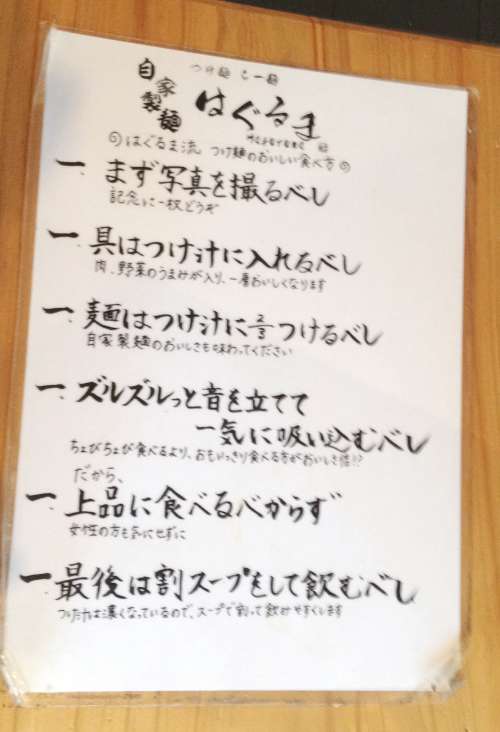 つけ麺 らー麺
自家製麺 はぐるま
はぐるま流 つけ麺のおいしい食べ方
一. まず写真を撮るべし
記念に一枚どうぞ
一. 具はつけ汁に入れるべし
肉、野菜のうまみが入り、一層おいしくなります
一. 麺はつけ汁に2/3つけるべし
自家製麺のおいしさも味わってください
一. ズルズルっと音を立てて
一気に吸い込むべし
ちょびちょび食べるより、おもいっきり食べる方がおいしさ倍!?
だから、
一. 上品に食べるべからず
女性の方も気にせずに
一. 最後は割スープをして飲むべし
つけ汁は濃くなっているので、スープで割って飲みやすくします